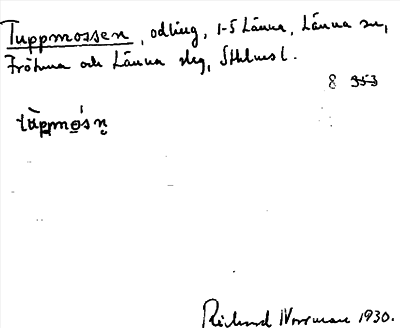 Tuppmossen, odling, 1-5 Länna, Länna sn,
Frötuna och Länna slg, Sthlms l.
8 353
tùpmósn̥
Richard Norrman 1930.